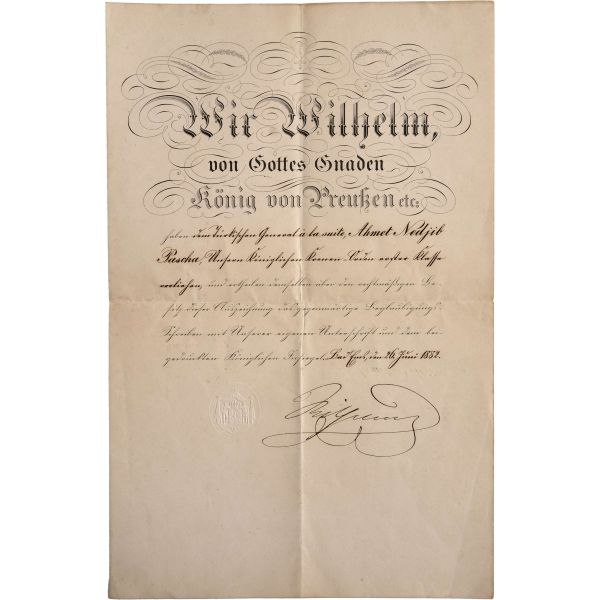 Wir Wilhelm,
von Gottes Gnaden
König von Preußen etc:
haben dem Türkischen General à la suite, Ahmet Nedjib
Pascha, Unsern Königlichen Kronen-Orden erster Klasse
verliehen, und ertheilen demselben über den rechtmäßigen Be-
sitz dieser Auszeichnung das gegenwärtige Beglaubigungs-
Schreiben mit Unserer eigenen Unterschrift und dem bei-
gedruckten Königlichen Insiegel. Bad Ems, den 26. Juni 1882.
Wilhelm